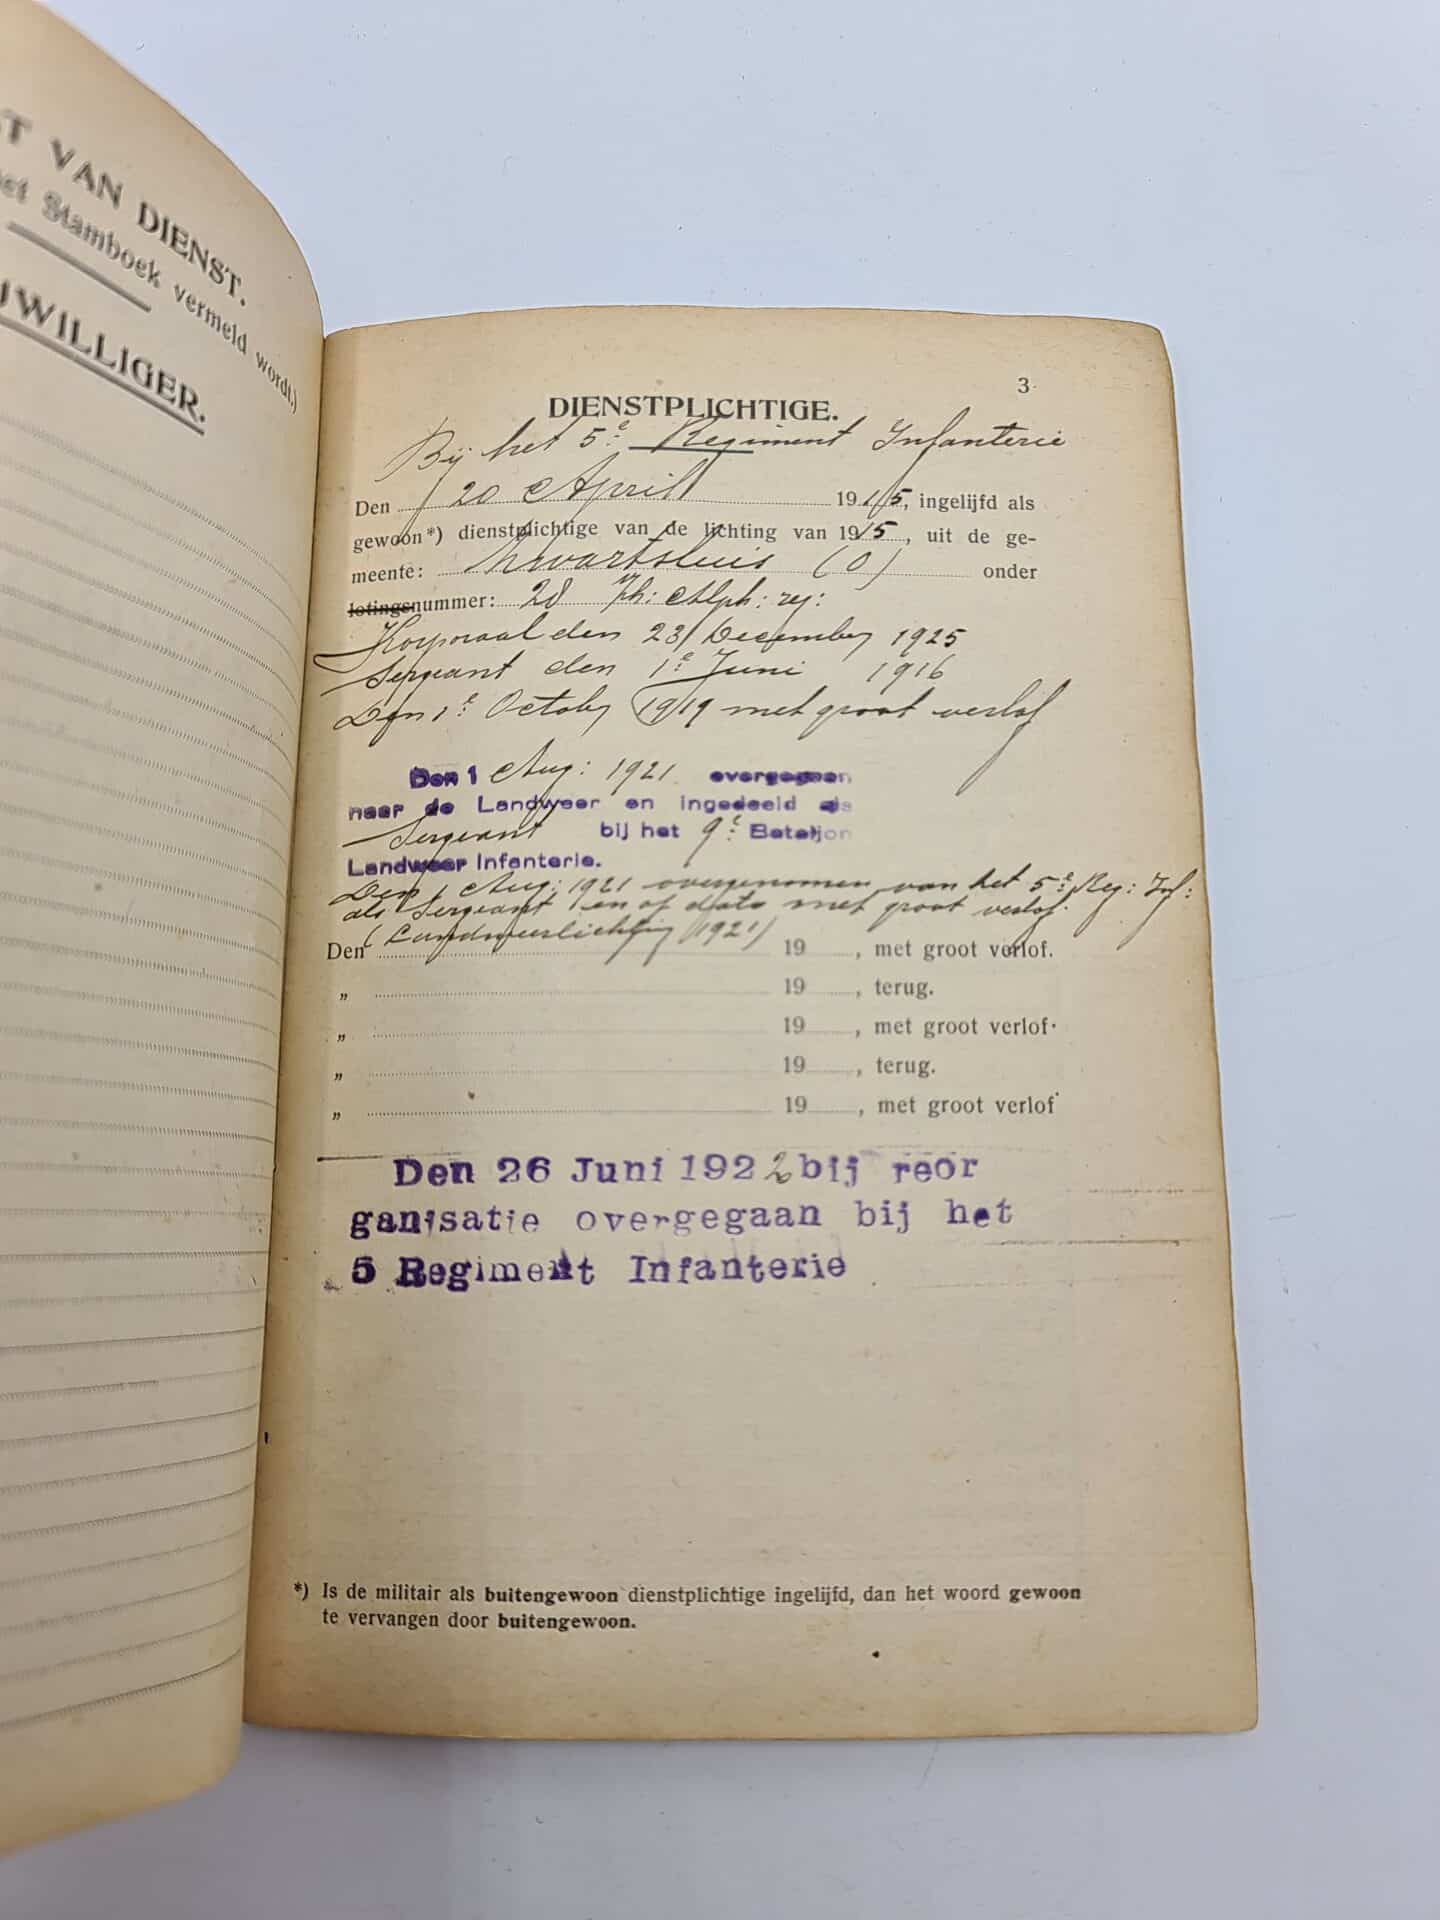 T VAN DIENST.
et Stamboek vermeld wordt.)
WILLIGER.
3
DIENSTPLICHTIGE.
Bij het 5e Regiment Infanterie
Den 20 April 1915, ingelijfd als
gewoon *) dienstplichtige van de lichting van 1915, uit de ge-
meente: Zwartsluis (O) onder
lotingsnummer: 28 Alph: reg:
Korporaal den 23 December 1925
Sergeant den 1e Juni 1916
Den 1e October 1919 met groot verlof
Den 1 Aug: 1921 overgegaan
naar de Landweer en ingedeeld als
Sergeant bij het 9e Bataljon
Landweer Infanterie.
Den 1 Aug: 1921 overgenomen van het 5e Reg: Inf:
als Sergeant en of dato met groot verlof.
(Landweerlichting 1921)
Den 19 , met groot verlof.
„ 19 , terug.
„ 19 , met groot verlof.
„ 19 , terug.
„ 19 , met groot verlof
Den 26 Juni 1922 bij reor
ganisatie overgegaan bij het
5 Regiment Infanterie
*) Is de militair als buitengewoon dienstplichtige ingelijfd, dan het woord gewoon
te vervangen door buitengewoon.